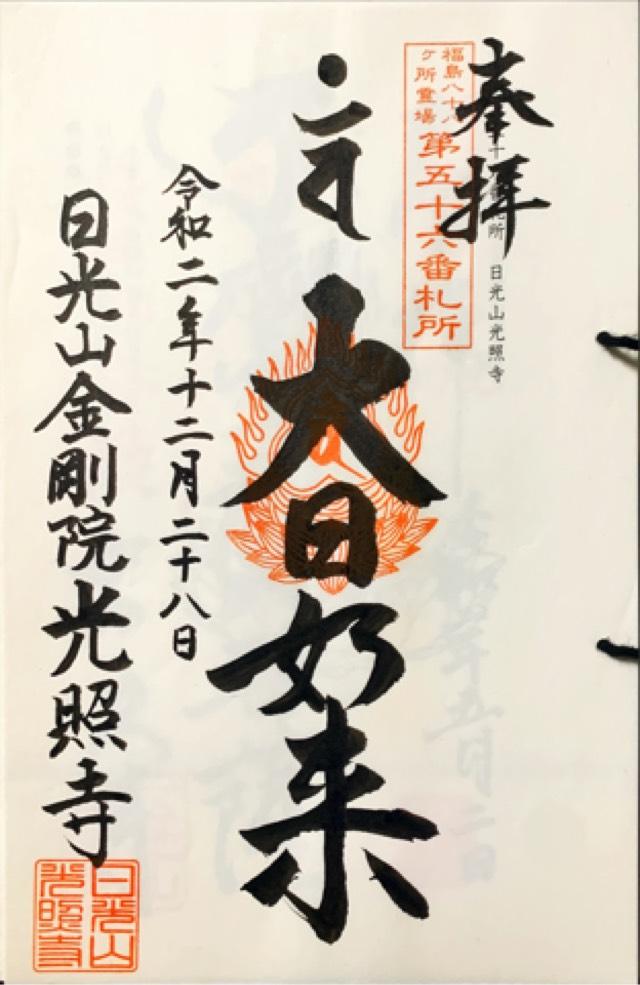 奉拝
日光山光照寺
福島八十八
ヶ所霊場
第五十六番札所
大日如来
令和二年十二月二十八日
日光山金剛院光照寺
日光山
光照寺